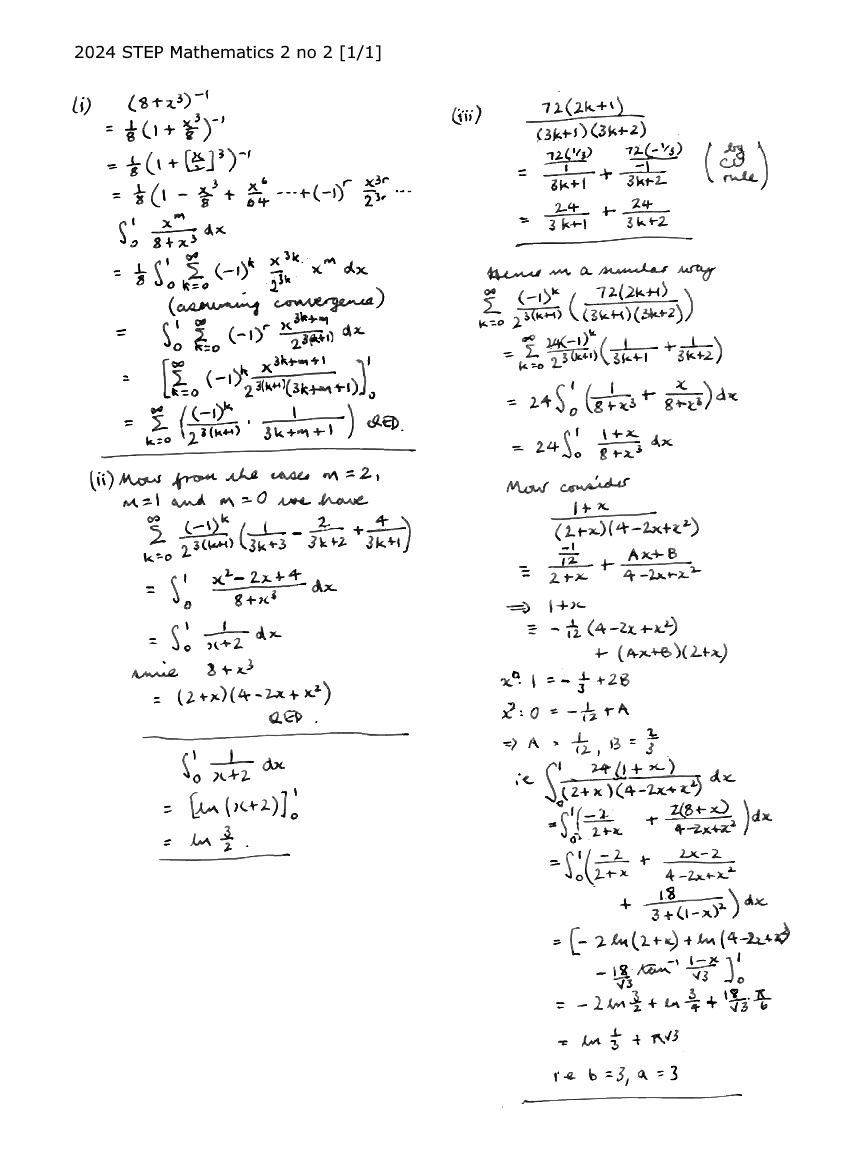 2024 STEP Mathematics 2 no 2 [1/1]
(i) (8+x³)⁻¹
= 1/8 (1 + x³/8)⁻¹
= 1/8 (1 + [x/2]³)⁻¹
= 1/8 (1 − x³/8 + x⁶/64 ··· + (−1)ʳ x³ʳ/2³ʳ ···
∫₀¹ xᵐ/(8+x³) dx
= 1/8 ∫₀¹ Σ_{k=0}^∞ (−1)ᵏ x^{3k}/2^{3k} xᵐ dx
(assuming convergence)
= ∫₀¹ Σ_{k=0}^∞ (−1)ʳ x^{3k+m}/2^{3(k+1)} dx
= [Σ_{k=0}^∞ (−1)ᵏ x^{3k+m+1}/(2^{3(k+1)}(3k+m+1))]₀¹
= Σ_{k=0}^∞ ((−1)ᵏ/2^{3(k+1)} · 1/(3k+m+1)) QED.
(ii) Now from the cases m=2,
m=1 and m=0 we have
Σ_{k=0}^∞ (−1)ᵏ/2^{3(k+1)} (1/(3k+3) − 2/(3k+2) + 4/(3k+1))
= ∫₀¹ (x²−2x+4)/(8+x³) dx
= ∫₀¹ 1/(x+2) dx
since 8+x³
= (2+x)(4−2x+x²)
QED.
∫₀¹ 1/(x+2) dx
= [ln(x+2)]₀¹
= ln 3/2.
(iii) 72(2k+1)/((3k+1)(3k+2))
= (72(1/3)/1)/(3k+1) + (72(−1/3)/−1)/(3k+2) ( CU rule )
= 24/(3k+1) + 24/(3k+2)
Hence in a similar way
Σ_{k=0}^∞ (−1)ᵏ/2^{3(k+1)} (72(2k+1)/((3k+1)(3k+2)))
= Σ_{k=0}^∞ 24(−1)ᵏ/2^{3(k+1)} (1/(3k+1) + 1/(3k+2))
= 24∫₀¹ (1/(8+x³) + x/(8+x³)) dx
= 24∫₀¹ (1+x)/(8+x³) dx
Now consider
(1+x)/((2+x)(4−2x+x²))
≡ (−1/12)/(2+x) + (Ax+B)/(4−2x+x²)
⇒ 1+x
≡ −1/12 (4−2x+x²)
+ (Ax+B)(2+x)
x⁰: 1 = −1/3 + 2B
x²: 0 = −1/12 + A
⇒ A = 1/12, B = 2/3
ie ∫₀¹ 24(1+x)/((2+x)(4−2x+x²)) dx
= ∫₀¹ (−2/(2+x) + 2(8+x)/(4−2x+x²)) dx
= ∫₀¹ (−2/(2+x) + (2x−2)/(4−2x+x²)
+ 18/(3+(1−x)²)) dx
= [−2 ln(2+x) + ln(4−2x+x²)
− 18/√3 tan⁻¹ (1−x)/√3]₀¹
= −2 ln 3/2 + ln 3/4 + 18/√3 · π/6
= ln 1/3 + π√3
ie b=3, a=3